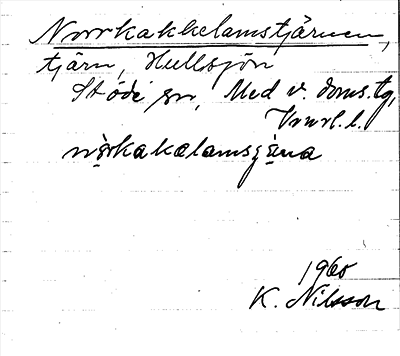 Norrkakkelamstjärnen,
tjärn, Hullsjön
Stöde sn, Med v. doms. tg,
Vnrl. l.
norkakælamsʒæna
1960
K. Nilsson